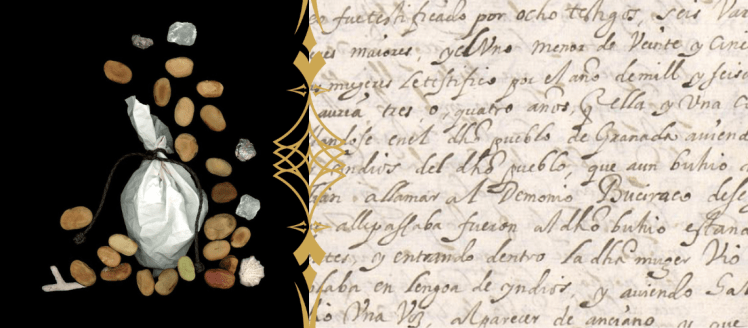 fue testificado por ocho testigos, seis Var
maiores, y el Uno menor de Veinte y Cinc
mugeres Le testifico por el año de mill y seis
auria tres, o, quatro años, q ella y Una
andose en el dho pueblo de Granada auiend
yndios del dho pueblo, que aun buhio
allamar al Demonio Buciraco
alli passaba fueron al dho buhio estand
y entrando dentro la dha muger Vio
laba en lengoa de yndios, y auiendo
Una Voz, al parecer de anciano, y que